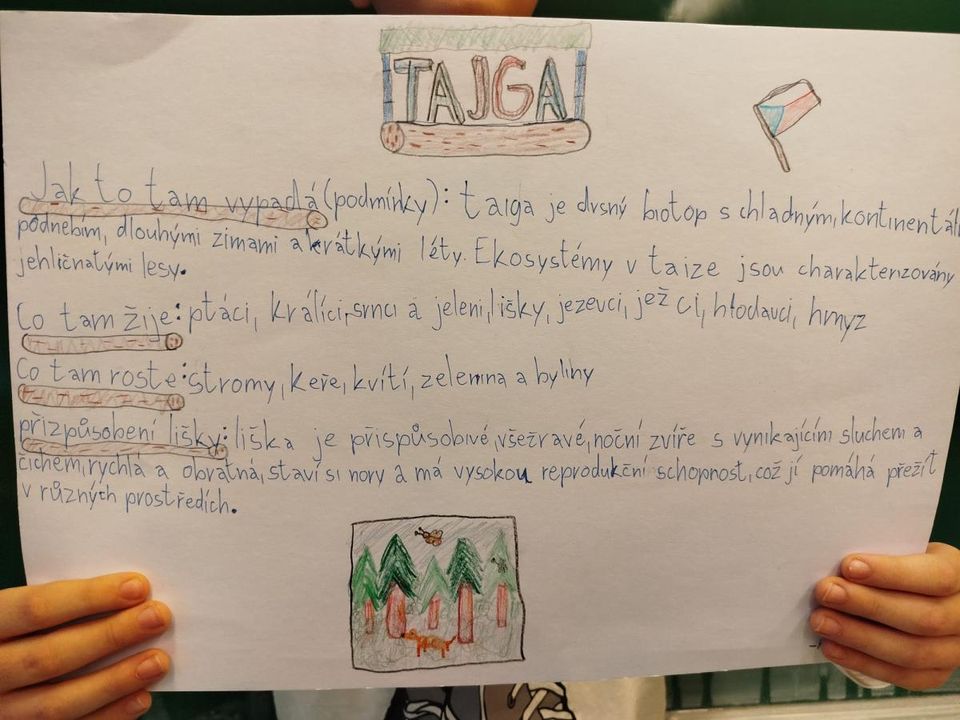 TAJGA
Jak to tam vypadá (podmínky): taiga je drsný biotop s chladným, kontinentál
podnebím, dlouhými zimami a krátkými léty. Ekosystémy v taize jsou charakterizovány
jehličnatými lesy.
Co tam žije: ptáci, králíci, srnci a jeleni, lišky, jezevci, ježci, hlodavci, hmyz
Co tam roste: stromy, keře, kvítí, zelenina a byliny
přizpůsobení lišky: liška je přispůsobivé, všežravé, noční zvíře s vynikajícím sluchem a
čichem, rychlá a obratná, staví si nory a má vysokou reprodukční schopnost, což jí pomáhá přežít
v různých prostředích.